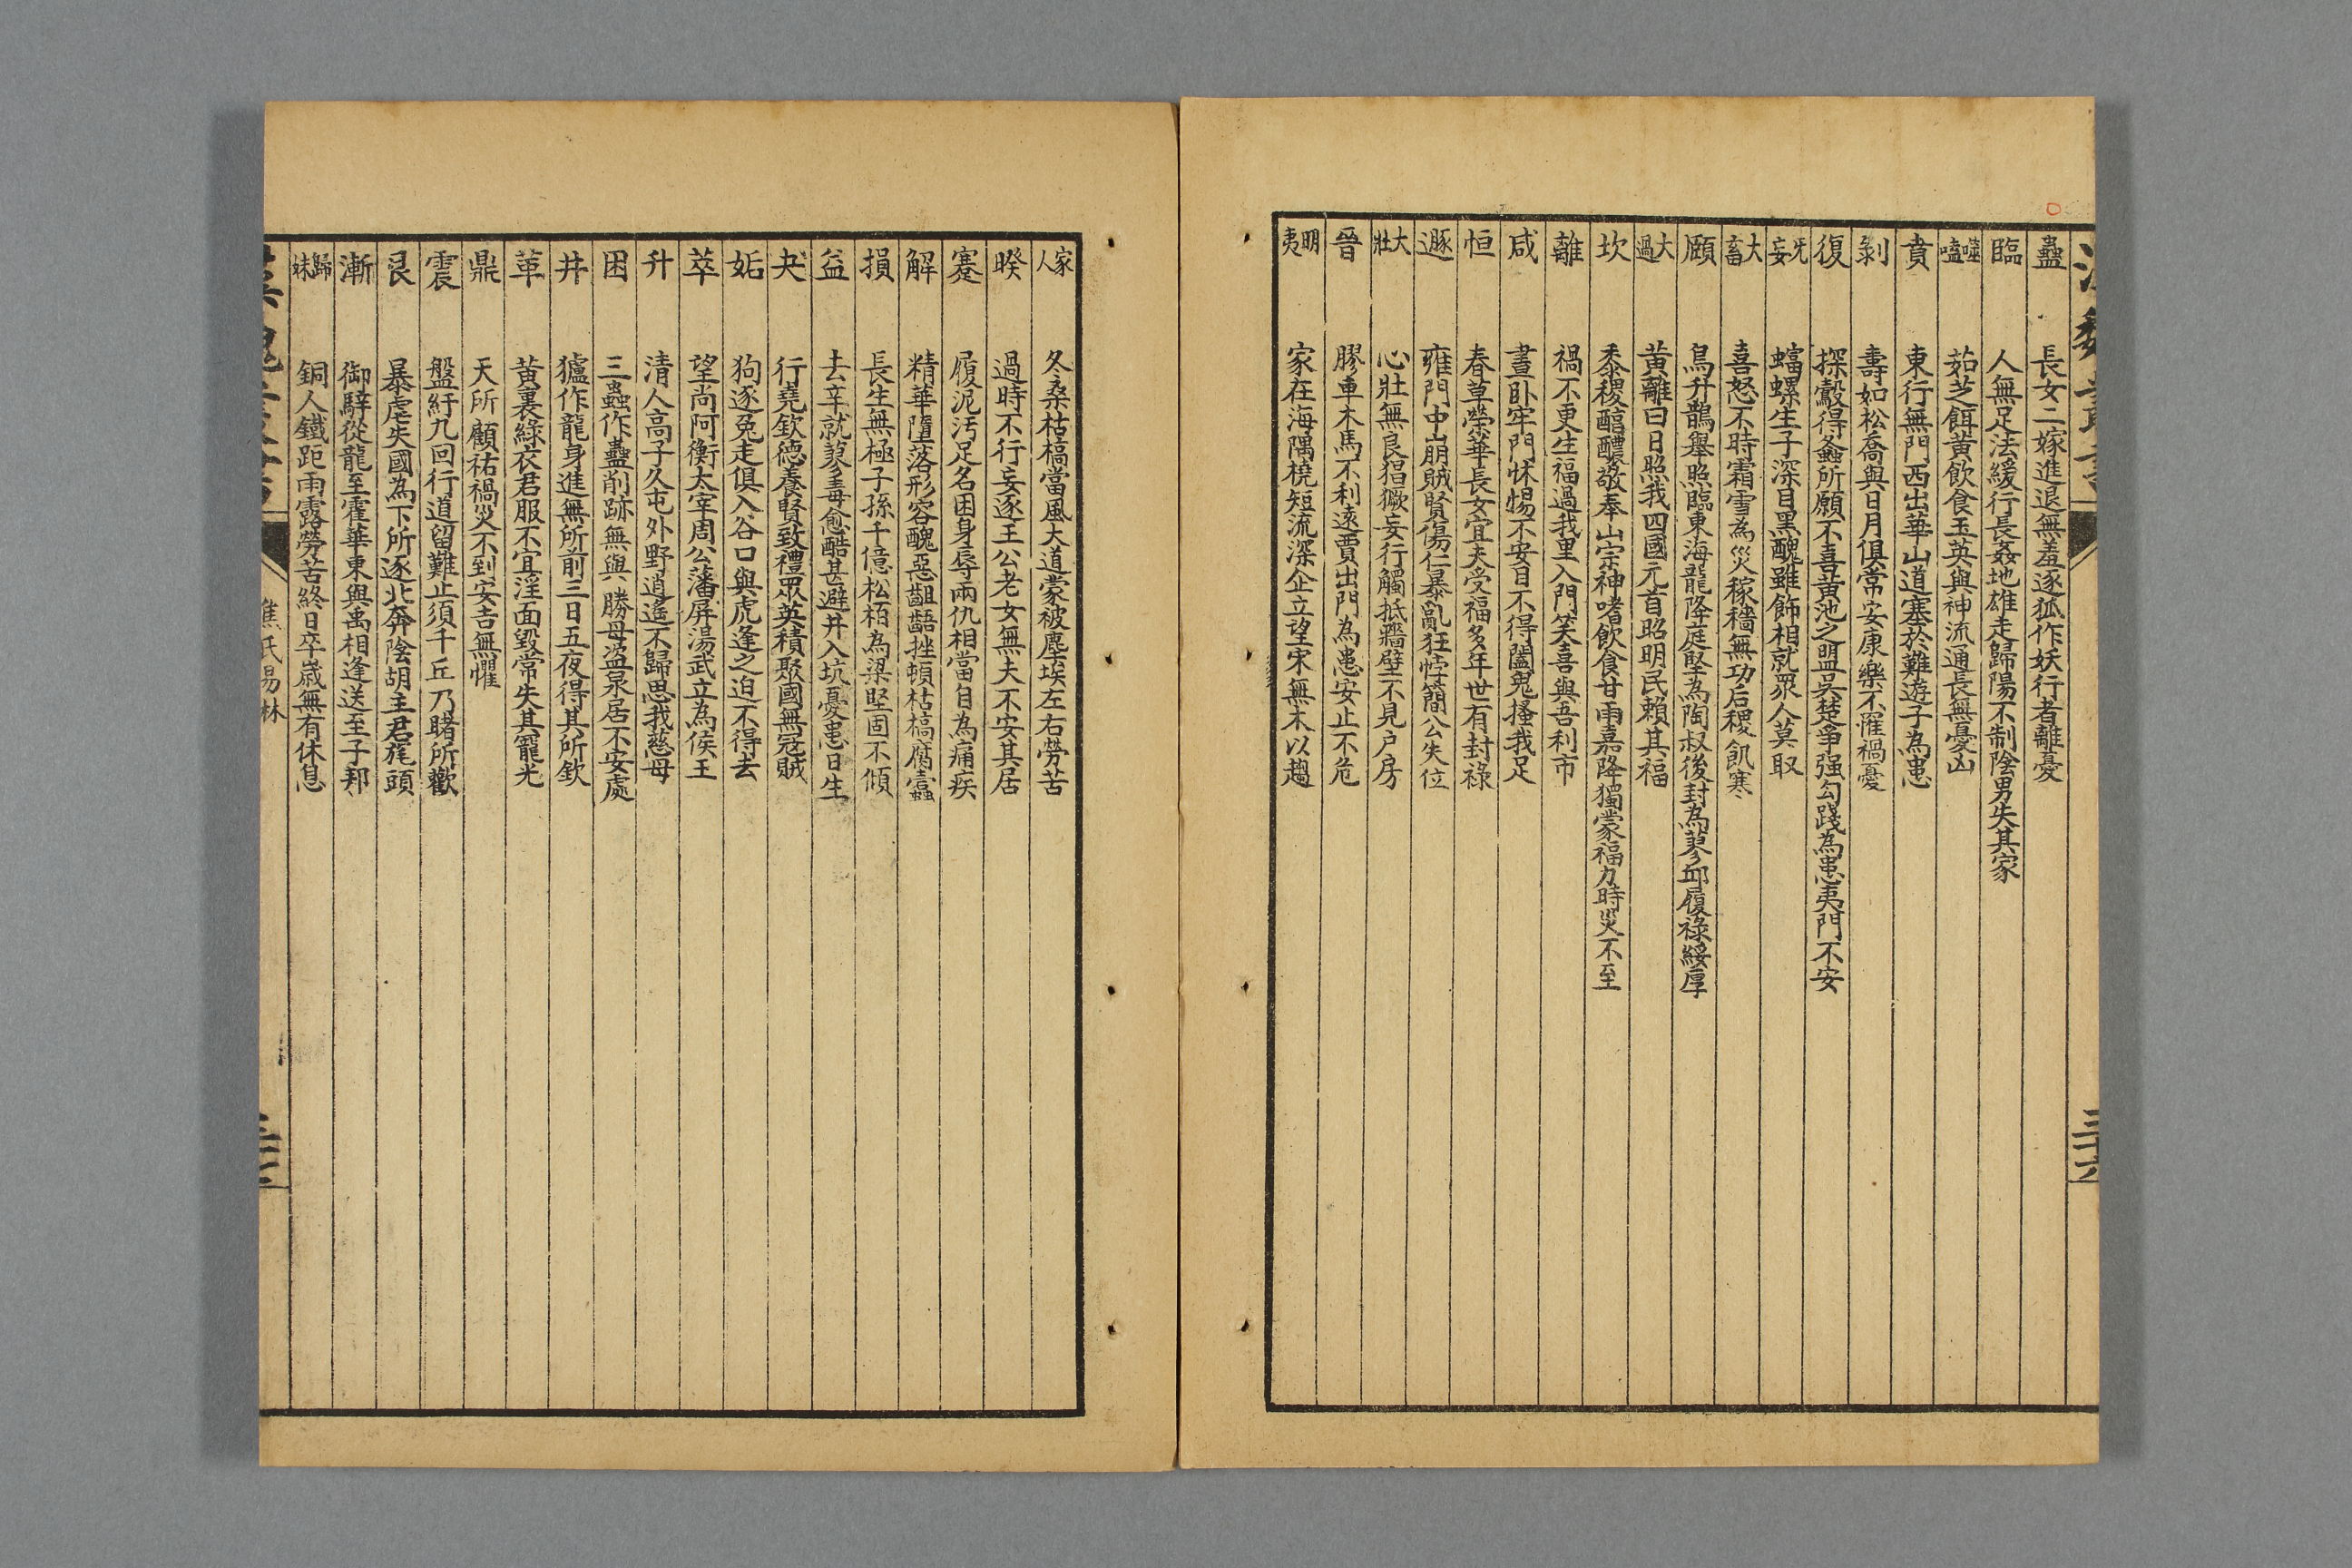 蠱 長女二嫁進退無羞逐狐作妖行者離憂
臨 人無足法緩行長姦地雄走歸陽不制陰男失其家
噬嗑 茹芝餌黃飲食玉英與神流通長無憂凶
賁 東行無門西出華山道塞於難遊子為患
剝 壽如松喬與日月俱常安康樂不罹禍憂
復 探鷇得螽所願不喜黃池之盟吳楚爭强勾踐為患夷門不安
无妄 蝠螺生子深目黑醜雖飾相就眾人莫取
大畜 喜怒不時霜雪為災稼穡無功后稷飢寒
頤 鳥升鵲舉照臨東海龍降庭堅為陶叔後封為蓼邱履祿綏厚
大過 黃離白日照我四國元首昭明民賴其福
坎 黍稷醇醲敬奉山宗神嗜飲食甘雨嘉降獨蒙福力時災不至
離 禍不更生福過我里入門笑喜與吾利市
咸 晝卧牢門悐惕不安目不得闔鬼搔我足
恒 春草榮華長女宜夫受福多年世有封祿
遯 雍門中崩賊賢傷仁暴亂狂悖簡公失位
大壯 心壯無良猖獗妄行觸抵牆壁不見户房
晉 膠車木馬不利遠賈出門為患安止不危
明夷 家在海隅橈短流深企立望宋無木以趨
三十六
家人 冬桑枯槁當風大道蒙被塵埃左右勞苦
睽 過時不行妄逐王公老女無夫不安其居
蹇 履泥污足名困身辱兩仇相當自為痛疾
解 精華墮落形容醜惡齟齬挫頓枯槁腐蠹
損 長生無極子孫千億松栢為梁堅固不傾
益 去辛就蓼毒愈酷甚避井入坑憂患日生
夬 行堯欽德養賢致禮眾英積聚國無寇賊
姤 狗逐兔走俱入谷口與虎逢之迫不得去
萃 望尚阿衡太宰周公藩屏湯武立為侯王
升 清人高子久屯外野逍遙不歸思我慈母
困 三蟲作蠱削跡無與勝母盜泉居不安處
井 獹作龍身進無所前三日五夜得其所欽
革 黃裏綠衣君服不宜淫面毀常失其寵光
鼎 天所顧祐禍災不到安吉無懼
震 盤紆九回行道留難止須千丘乃睹所歡
艮 暴虐失國為下所逐北奔陰胡主君旄頭
漸 御騂從龍至霍華東與禹相逢送至于邦
歸妹 銅人鐵距雨露勞苦終日卒歲無有休息
焦氏易林